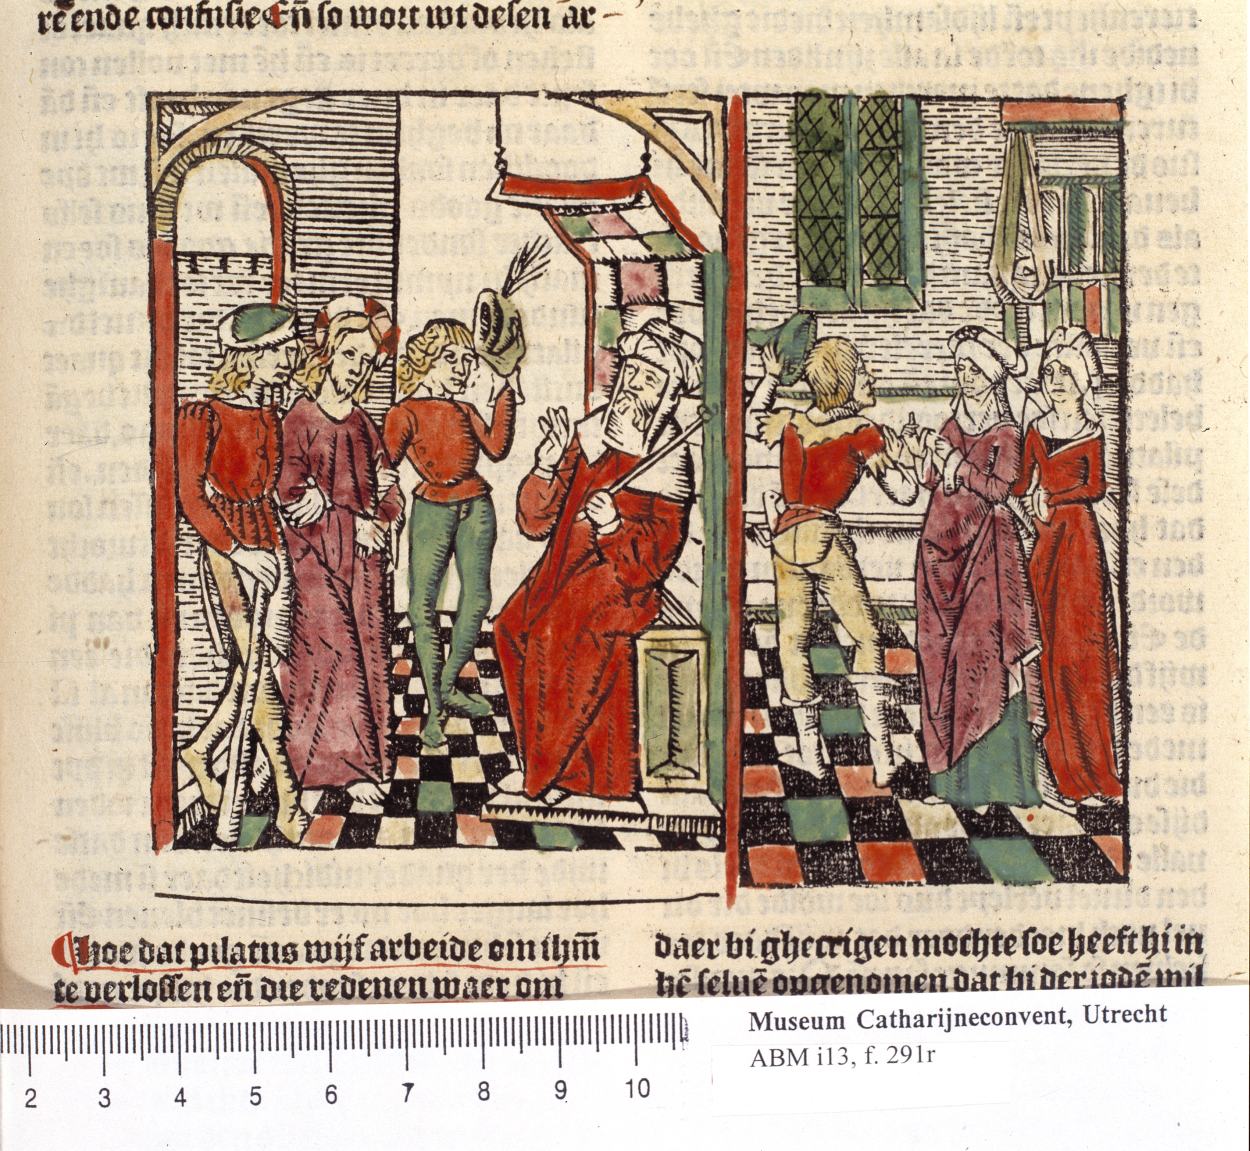 rē ende confusie Eñ so wort wt desen ar-
Hoe dat pilatus wijf arbeide om ihm̄
te verlossen eñ die redenen waer om
daer bi ghecrigen mochte soe heeft hi in
hē seluē opgenomen dat hi der iodē wil
2 3 4 5 6 7 8 9 10
Museum Catharijneconvent, Utrecht
ABM i13, f. 291r